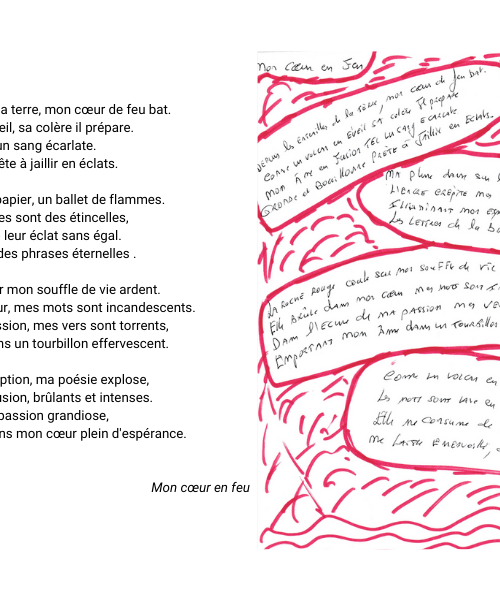 a terre, mon cœur de feu bat.
eil, sa colère il prépare.
un sang écarlate.
ête à jaillir en éclats.
papier, un ballet de flammes.
es sont des étincelles,
leur éclat sans égal.
des phrases éternelles .
r mon souffle de vie ardent.
ur, mes mots sont incandescents.
ssion, mes vers sont torrents,
ns un tourbillon effervescent.
ption, ma poésie explose,
usion, brûlants et intenses.
passion grandiose,
ns mon cœur plein d'espérance.
Mon cœur en feu
Mon cœur en feu
les entrailles de la terre, mon cœur de feu bat.
comme un volcan en éveil sa colère il prépare
mon âme en fusion tel un sang écarlate
Gronde et bouillonne prête à jaillir en éclats.
Ma plume danse sur l
L'encre crépite ma
Illuminant mon esp
Les lettres de la ba
La roche rouge coule sur mon souffle de vie
Elle brûle dans mon cœur mes mots sont
Dans l'écume de ma passion mes ve
Emportant mon âme dans un tourbillon
Comme un volcan en
Les mots sont lave en
Elle me consume de
me laisse